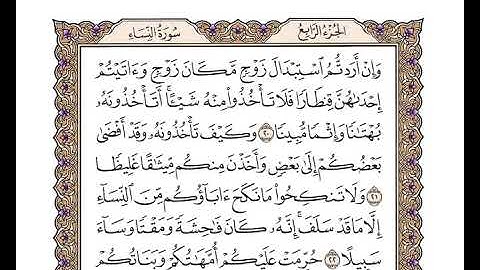 الجزء الرابع
سورة النساء
وَإِنْ أَرَدتُّمُ ٱسْتِبْدَالَ زَوْجٍ مَّكَانَ زَوْجٍ وَءَاتَيْتُمْ
إِحْدَىٰهُنَّ قِنطَارًا فَلَا تَأْخُذُوا۟ مِنْهُ شَيْـًٔا ۚ أَتَأْخُذُونَهُۥ
بُهْتَـٰنًا وَإِثْمًا مُّبِينًا ٢٠ وَكَيْفَ تَأْخُذُونَهُۥ وَقَدْ أَفْضَىٰ
بَعْضُكُمْ إِلَىٰ بَعْضٍ وَأَخَذْنَ مِنكُم مِّيثَـٰقًا غَلِيظًا
٢١ وَلَا تَنكِحُوا۟ مَا نَكَحَ ءَابَآؤُكُم مِّنَ ٱلنِّسَآءِ
إِلَّا مَا قَدْ سَلَفَ ۚ إِنَّهُۥ كَانَ فَـٰحِشَةً وَمَقْتًا وَسَآءَ
سَبِيلًا ٢٢ حُرِّمَتْ عَلَيْكُمْ أُمَّهَـٰتُكُمْ وَبَنَاتُكُمْ